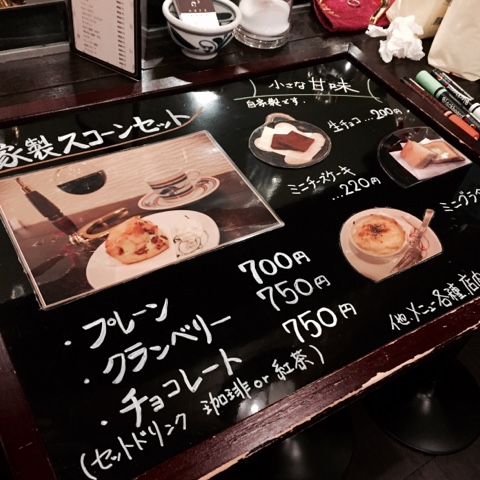 家製スコーンセット
・プレーン 700円
・クランベリー 750円
・チョコレート 750円
(セットドリンク 珈琲or紅茶)
小さな甘味
自家製です
生チョコ…200円
ミニチーズケーキ
…220円
ミニグラタ
他、メニュー各種店内